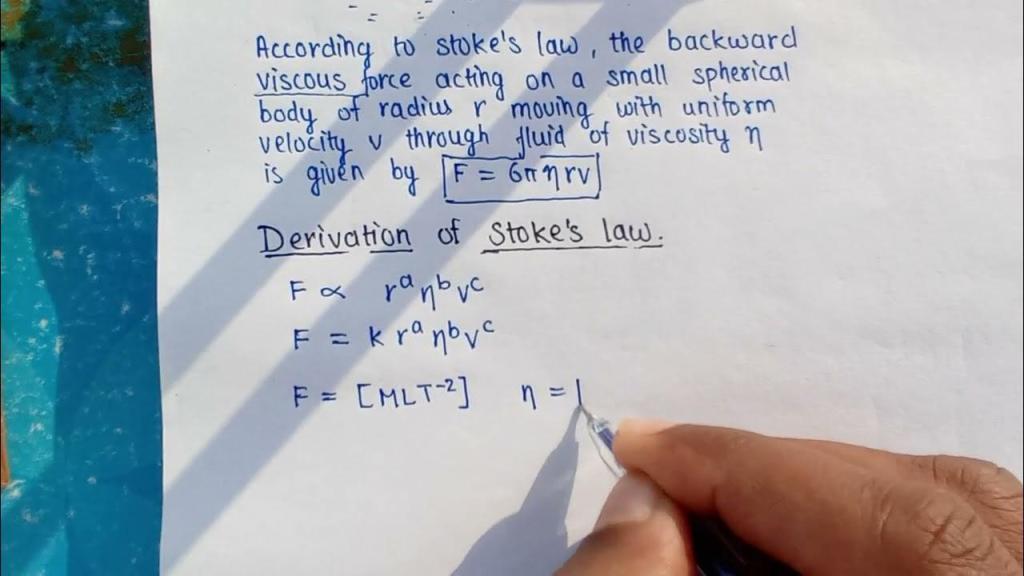 According to stoke's law, the backward
viscous force acting on a small spherical
body of radius r moving with uniform
velocity v through fluid of viscosity η
is given by F = 6πηrv
Derivation of Stoke's law.
F ∝ rᵃηᵇvᶜ
F = k rᵃηᵇvᶜ
F = [MLT⁻²] η =